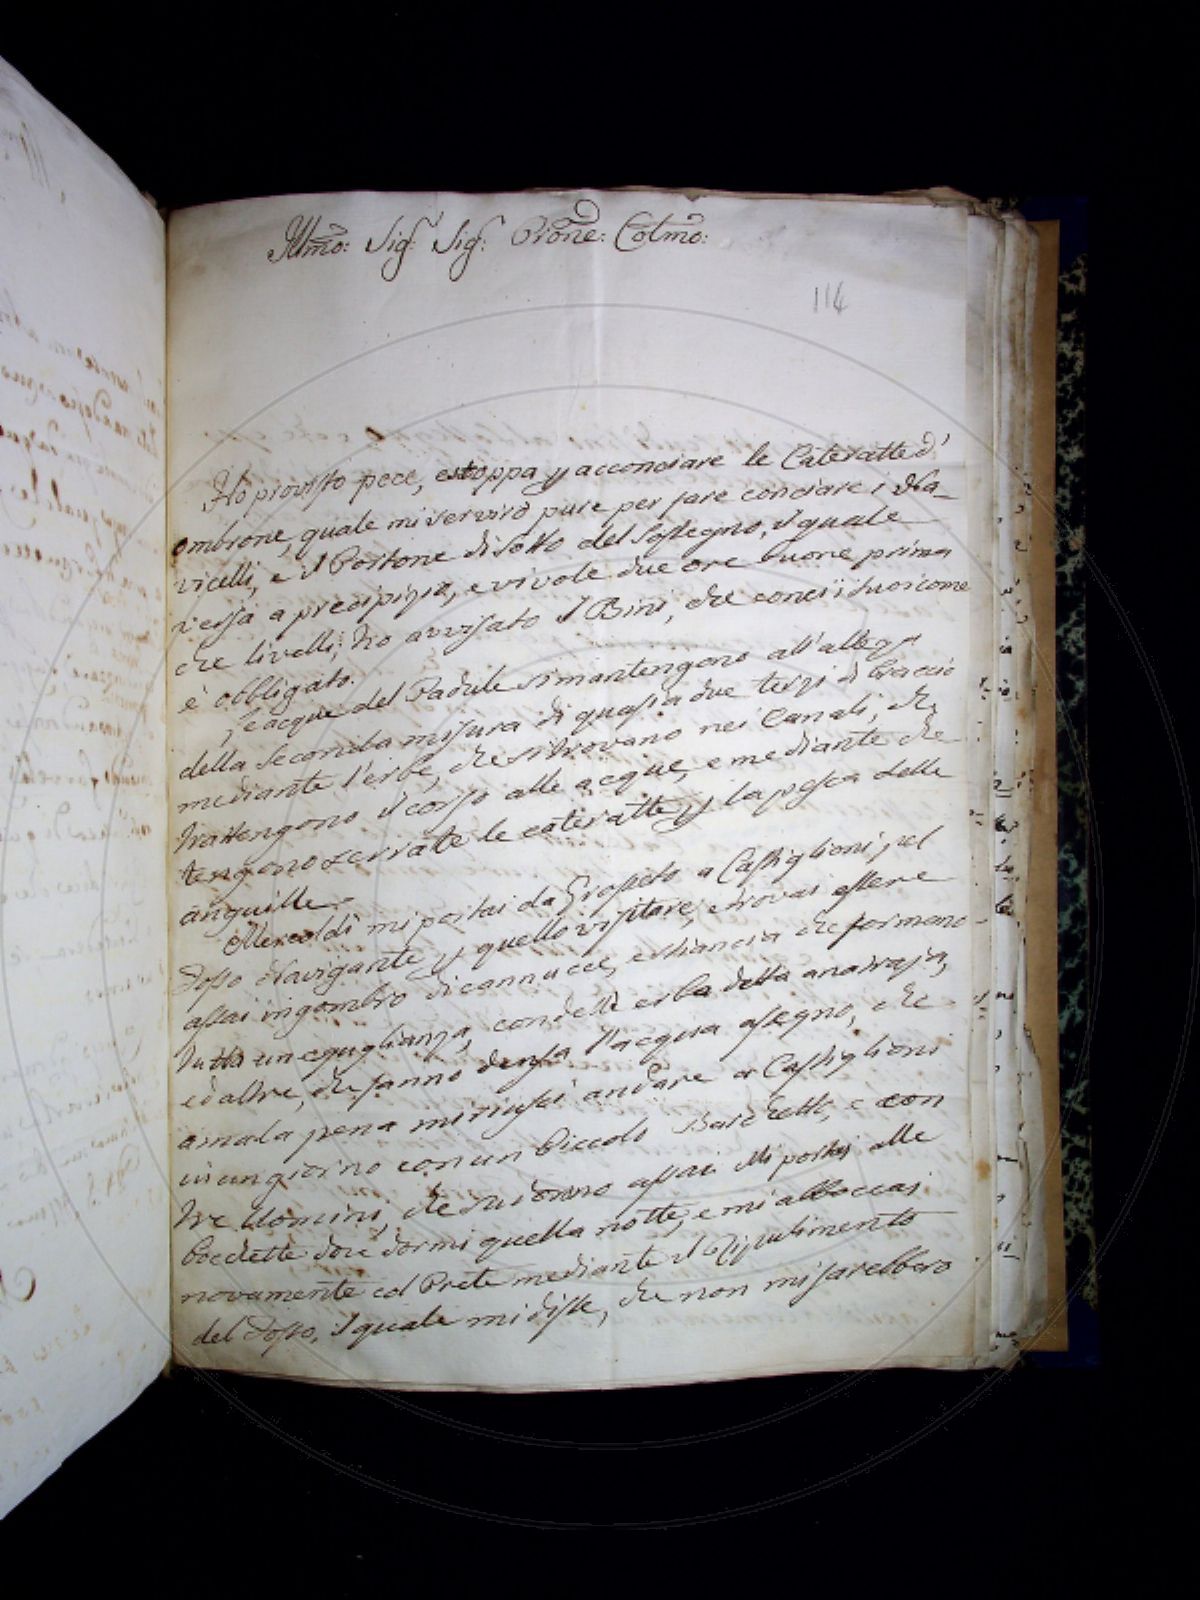 Illmo: Sig: Sig: Prone: Colmo:
114
Ho provisto pece, e stoppa p acconciare le Cateratte d'
ombrone, quale mi servirò pure per fare conciare i Na-
vicelli, e il Portone di sotto del Sostegno, il quale
versa a precipizio, e vi vole due ore buone prima
che livelli; ho avvisato il Bini, che conci i suoi come
è obbligato.
L'acque del Padule si mantengono all'altez.a
della seconda misura di quasi a due terzi di braccio
mediante l'erbe, che si trovano nei Canali, che
trattengono il corso alle acque, e mediante che
tengono serrate le cateratte p la pesca delle
anguille.
Mercoldì mi portai da Grosseto a Castiglioni, pel
Fosso Navigante p quello visitare, e trovai essere
assai ingombro di cannucce, e stiancia che formano
tutta un eguaglianza, con dell'erba detta anatraja,
ed altre, che fanno densa l'acqua a segno, che
a mala pena mi riuscì andare a Castiglioni
in un giorno con un piccolo Barchetto, e con
tre Uomini, che sudorno assai. Mi portai alle
bocchette dove dormi quella notte, e mi abboccai
novamente col Prete mediante il Ripulimento
del Fosso, il quale mi disse, che non mi sarebbero